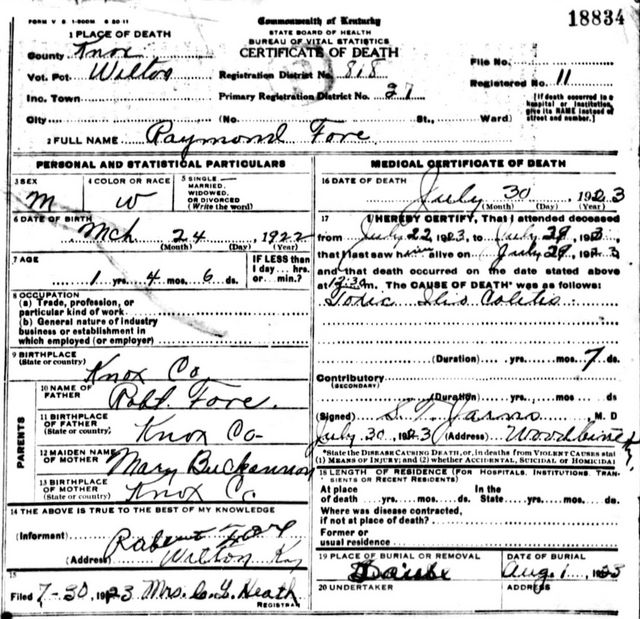 FORM V S 1-500M 6 20 11
Commonwealth of Kentucky
18834
1 PLACE OF DEATH
STATE BOARD OF HEALTH
BUREAU OF VITAL STATISTICS
County Knox
CERTIFICATE OF DEATH
File No.
Vot. Pct. Wilton
Registration District No. 818
Registered No. 11
Inc. Town
Primary Registration District No. 27
[If death occurred in a hospital or institution, give its NAME instead of street and number.]
City (No St., Ward)
2 FULL NAME Raymond Fore
PERSONAL AND STATISTICAL PARTICULARS
3 SEX M
4 COLOR OR RACE W
5 SINGLE MARRIED, WIDOWED, OR DIVORCED (Write the word)
6 DATE OF BIRTH Mch 24 1922
(Month) (Day) (Year)
7 AGE
IF LESS than 1 day ... hrs. or min.?
1 yrs. 4 mos. 6 ds.
8 OCCUPATION
(a) Trade, profession, or particular kind of work
(b) General nature of industry business or establishment in which employed (or employer)
9 BIRTHPLACE (State or country) Knox Co
PARENTS
10 NAME OF FATHER Robt Fore
11 BIRTHPLACE OF FATHER (State or country) Knox Co
12 MAIDEN NAME OF MOTHER Mary
13 BIRTHPLACE OF MOTHER (State or country) Knox Co
14 THE ABOVE IS TRUE TO THE BEST OF MY KNOWLEDGE
(Informant) Robert Fore
(Address) Wilton Ky
15
Filed 7-30 1923 Mrs. C. L. Heath
REGISTRAR
MEDICAL CERTIFICATE OF DEATH
16 DATE OF DEATH July 30 1923
(Month) (Day) (Year)
17 I HEREBY CERTIFY, That I attended deceased
from July 22 1923, to July 29 1923,
that I last saw him alive on July 29 1923
and that death occurred on the date stated above
at 12:30 m. The CAUSE OF DEATH* was as follows:
Toxic Ilio Colitis
(Duration) yrs. mos. 7 ds.
Contributory
(SECONDARY)
(Duration) yrs. mos. ds
(Signed) S. T. , M. D
July 30 1923 (Address) Woodbine Ky
*State the DISEASE CAUSING DEATH, or, in deaths from VIOLENT CAUSES stat
(1) MEANS OF INJURY; and (2) whether ACCIDENTAL, SUICIDAL or HOMICIDAL
18 LENGTH OF RESIDENCE (FOR HOSPITALS, INSTITUTIONS, TRAN-
SIENTS OR RECENT RESIDENTS)
At place of death yrs. mos. ds. In the State yrs. mos. ds
Where was disease contracted, if not at place of death?
Former or usual residence
19 PLACE OF BURIAL OR REMOVAL
DATE OF BURIAL
Aug. 1 1923
20 UNDERTAKER
ADDRESS